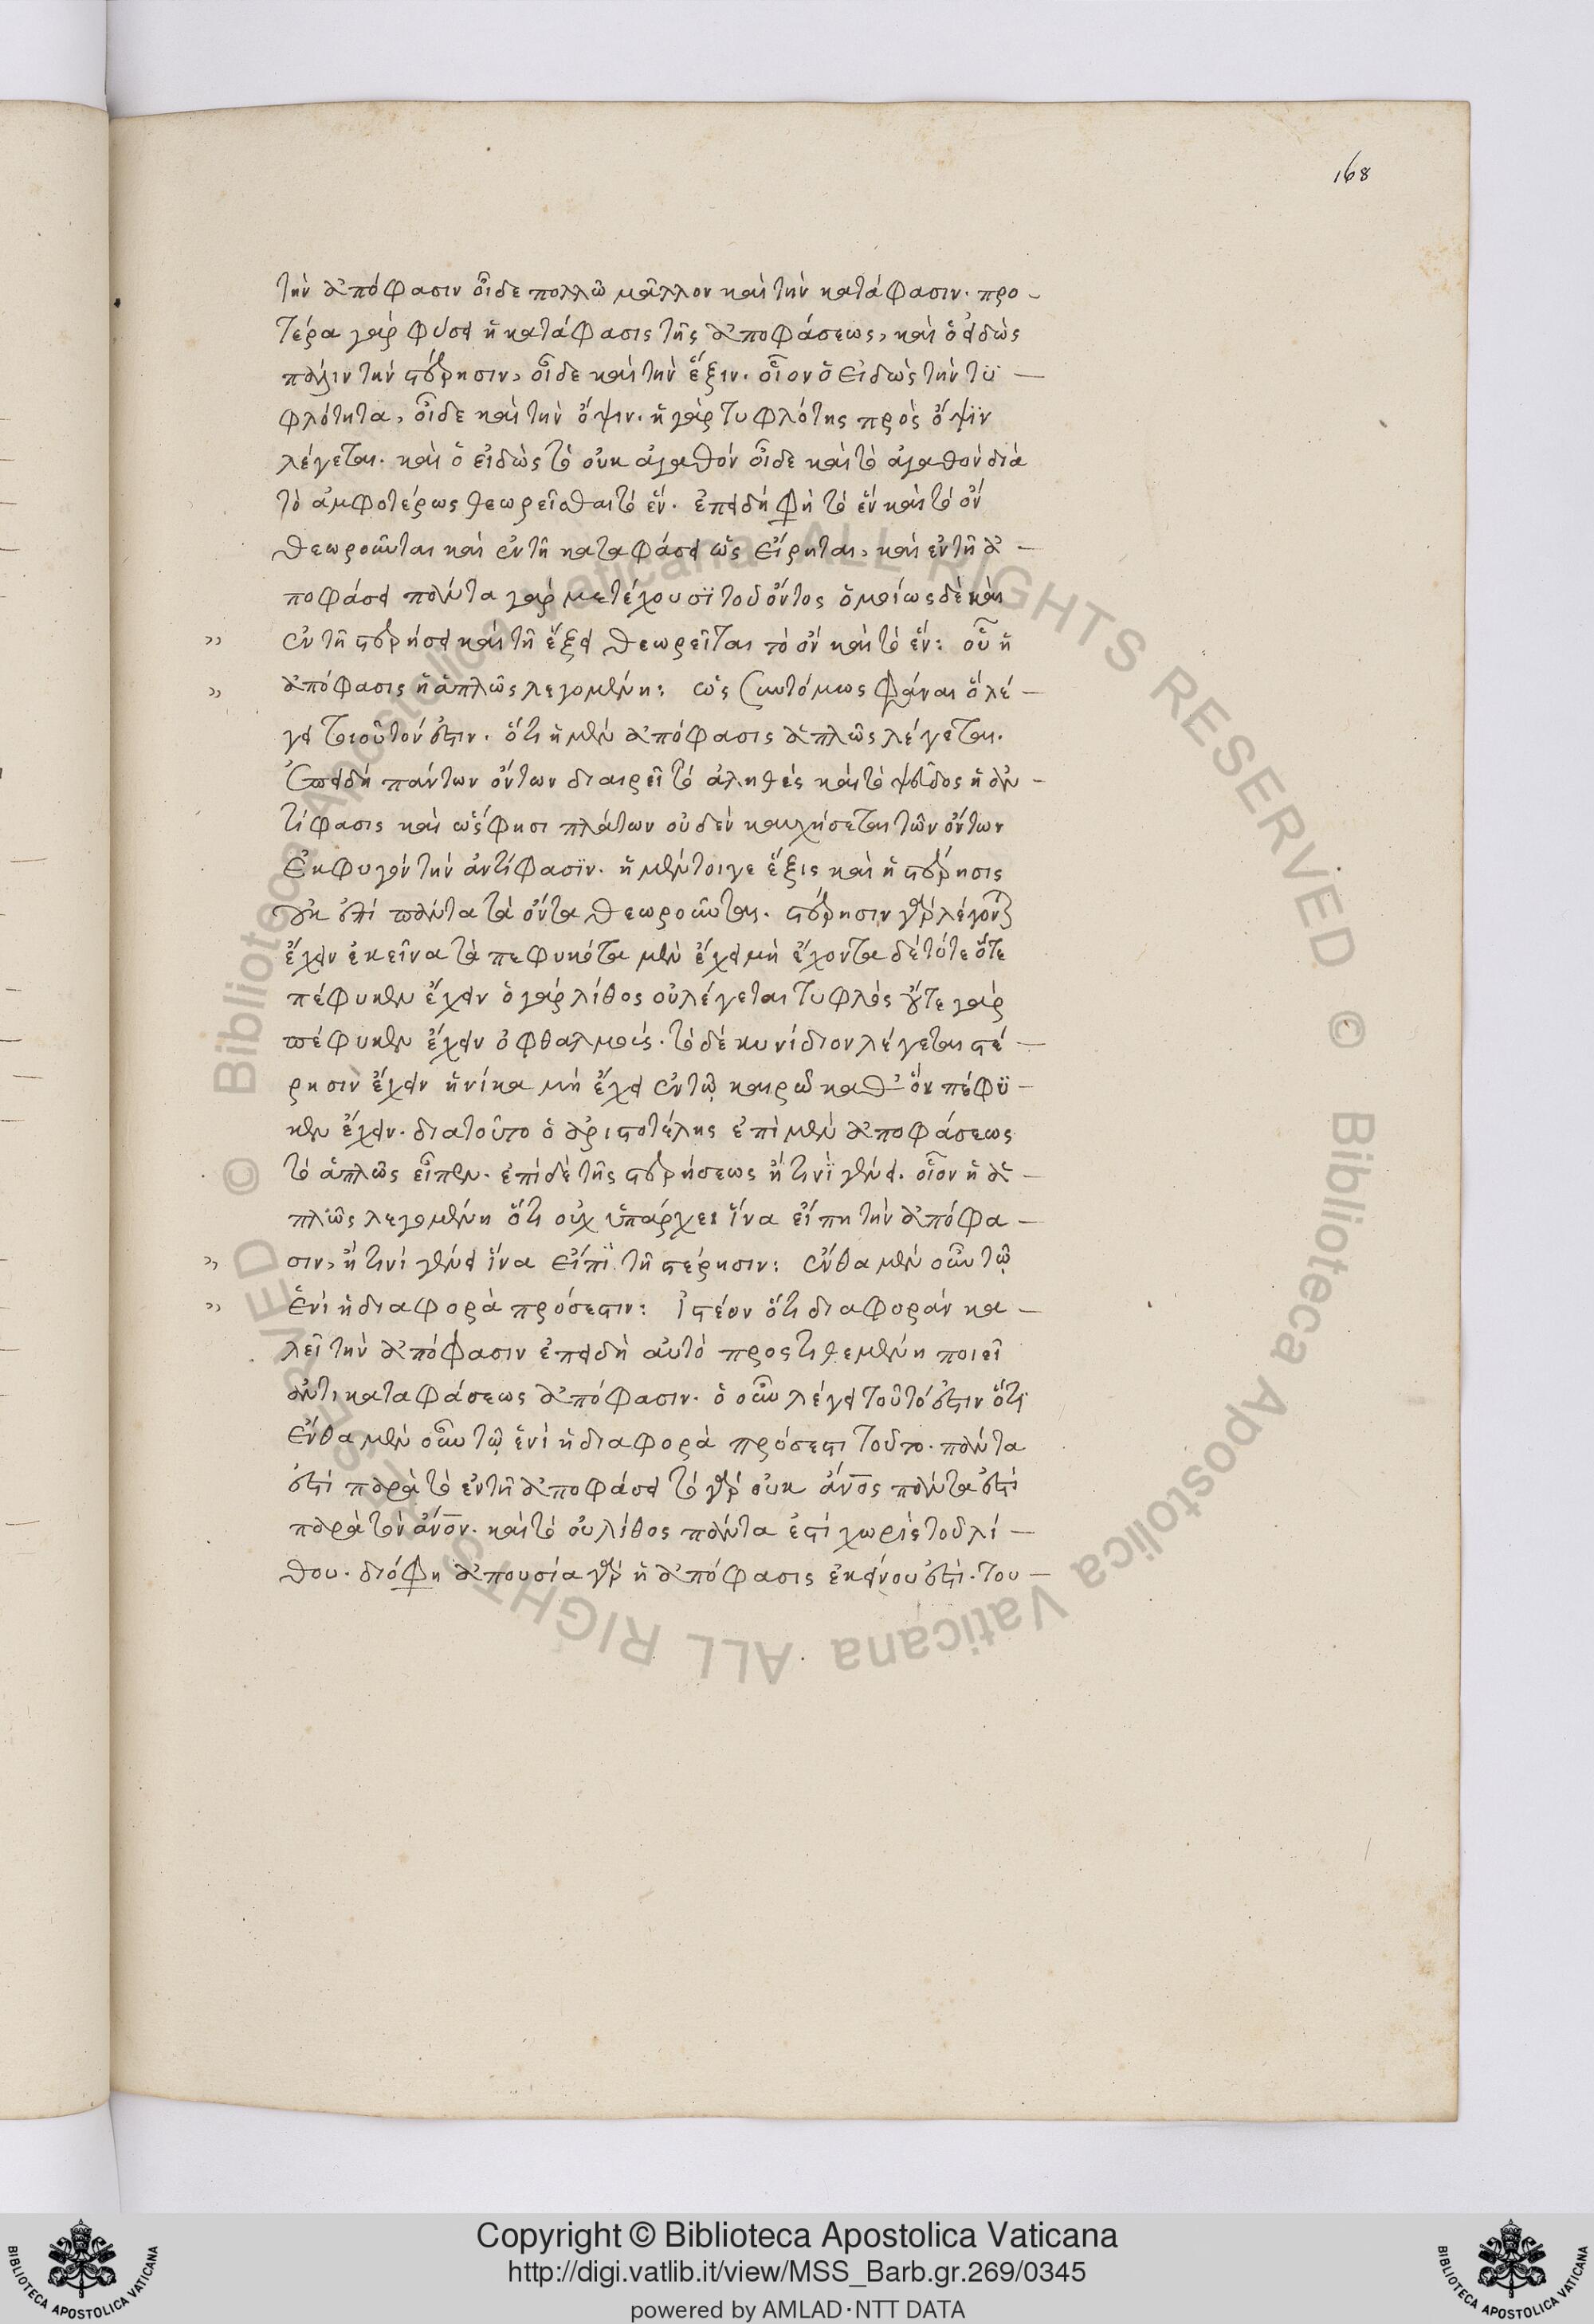 168
τὴν ἀπόφασιν οἶδε πολλῶ μᾶλλον καὶ τὴν κατάφασιν. προ-
τέρα γὰρ φύσει ἡ κατάφασις τῆς ἀποφάσεως, καὶ ὁ εἰδὼς
πάλιν τὴν στέρησιν, οἶδε καὶ τὴν ἕξιν. οἷον ὁ εἰδὼς τὴν τϋ-
φλότητα, οἶδε καὶ τὴν ὄψιν. ἡ γὰρ τυφλότης πρὸς ὄψϊν
λέγεται. καὶ ὁ εἰδὼς τὸ οὐκ ἀγαθόν οἶδε καὶ τὸ ἀγαθόν διὰ
τὸ ἀμφοτέρως θεωρεῖσθαι τὸ ἕν. ἐπειδή φη τὸ ἕν καὶ τὸ ὄν
θεωροῦνται καὶ ἐν τῆ καταφάσει ὡς εἴρηται, καὶ ἐν τῆ ἀ-
ποφάσει πάντα γὰρ μετέχουσϊ τοῦ ὄντος ὁμοίως δὲ καὶ
" ἐν τῆ στερήσει καὶ τῆ ἕξει θεωρεῖται τὸ ὄν καὶ τὸ ἕν: οὗ ἡ
" ἀπόφασις ἡ ἁπλῶς λεγομένη: ὡς συντόμως φάναι ὃ λέ-
γει τοιοῦτόν ἐστιν. ὅτι ἡ μὲν ἀπόφασις ἁπλῶς λέγεται.
ἐπειδή πάντων ὄντων διαιρεῖ τὸ ἀληθές καὶ τὸ ψεῦδος ἡ ἀν-
τίφασις καὶ ὥς φησι πλάτων οὐδέν καυχήσεται τῶν ὄντων
ἐκφυγόν τὴν ἀντίφασϊν. ἡ μέντοιγε ἕξις καὶ ἡ στέρησις
οὐκ ἐπί πάντα τὰ ὄντα θεωροῦνται. στέρησιν γὰρ λέγονται
ἔχειν ἐκεῖνα τὰ πεφυκότα μὲν ἔχει μὴ ἔχοντα δέ τότε ὅτε
πέφυκεν ἔχειν ὁ γὰρ λίθος οὐ λέγεται τυφλὸς οὔτε γὰρ
πέφυκεν ἔχειν ὀφθαλμούς. τὸ δέ κυνίδιον λέγεται στέ-
ρησιν ἔχειν ἡνίκα μὴ ἔχει ἐν τῷ καιρῶ καθ' ὅν πέφϋ-
κεν ἔχειν. διατοῦτο ὁ ἀριστοτέλης ἐπὶ μὲν ἀποφάσεως
τὸ ἁπλῶς εἶπεν. ἐπὶ δὲ τῆς στερήσεως ἤ τινϊ γένει. οἷον ἡ ἁ-
πλῶς λεγομένη ὅτι οὐχ ὑπάρχει ἵνα εἴπη τὴν ἀπόφα-
" σιν, ἤ τινί γένει ἵνα εἴπϊ τὴ στέρησιν: ἔνθα μὲν οὖν τῷ
" ἑνὶ ἡ διαφορὰ πρόσεστιν: ἰστέον ὅτι διαφοράν κα-
λεῖ τὴν ἀπόφασιν ἐπειδὴ αὐτὸ προστιθεμένη ποιεῖ
ἀντι καταφάσεως ἀπόφασιν. ὁ οὖν λέγει τοῦτό ἐστιν ὅτϊ
ἔνθα μὲν οὖν τῷ ἑνὶ ἡ διαφορὰ πρόσεστι τοῦτο. πάντα
ἐστὶ παρὰ τὸ ἐν τῆ ἀποφάσει τὸ γὰρ οὐκ ἄνος πάντα ἐστὶ
παρὰ τὸν ἄνον. καὶ τὸ οὐ λίθος πάντα ἐστὶ χωρὶς τοῦ λί-
θου. διό φη ἀπουσία γὰρ ἡ ἀπόφασις ἐκείνου ἐστι. του-
Copyright © Biblioteca Apostolica Vaticana
http://digi.vatlib.it/view/MSS_Barb.gr.269/0345
powered by AMLAD·NTT DATA
BIBLIOTECA APOSTOLICA VATICANA
BIBLIOTECA APOSTOLICA VATICANA
© Biblioteca Apostolica Vaticana ALL RIGHTS RESERVED © Biblioteca Apostolica Vaticana ALL RIGHTS RESERVED